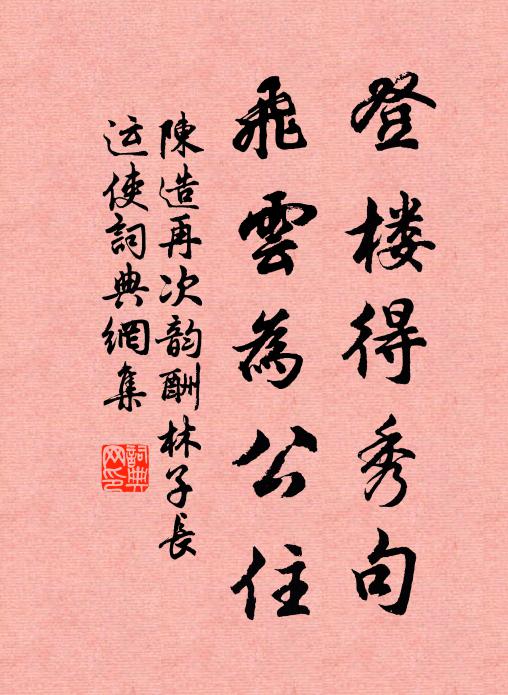 登楼得秀句
飛雲為公住
陳造再次韵酬林子長
运使詞典網集
詞典
网印